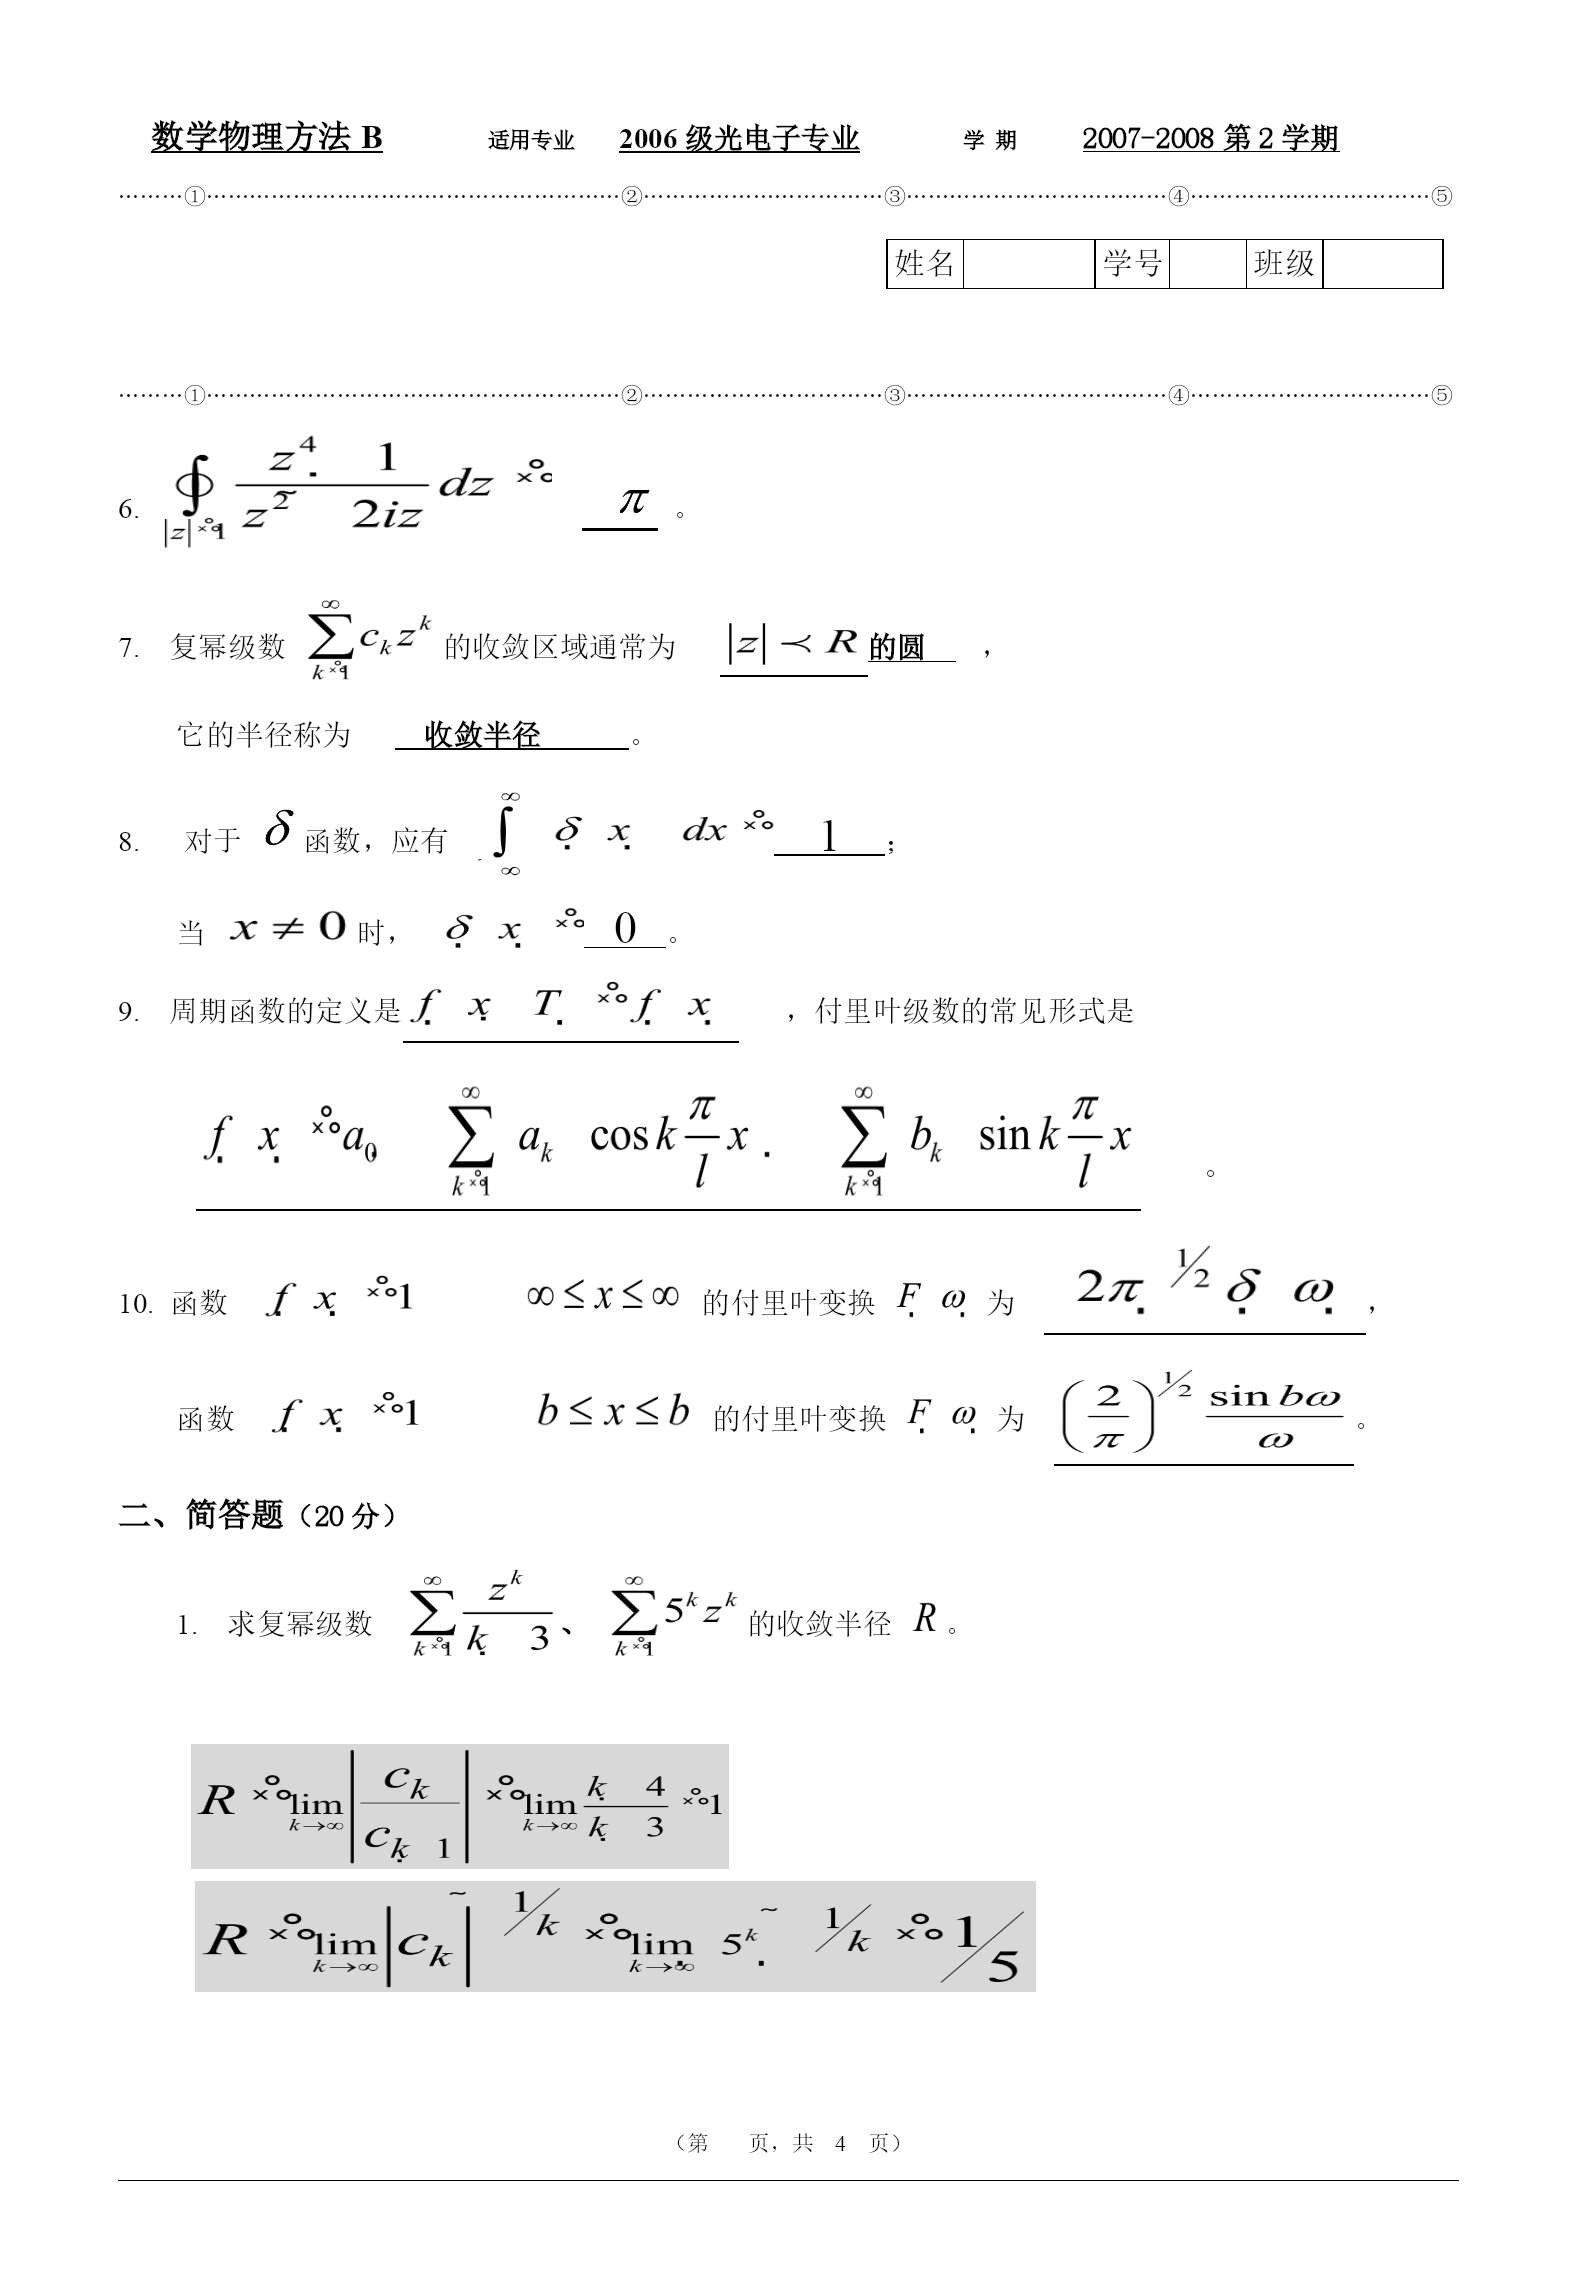 数学物理方法 B 适用专业 2006 级光电子专业 学 期 2007-2008 第 2 学期
………①…………………………………………………②……………………………③………………………………④……………………………⑤
姓名 学号 班级
………①…………………………………………………②……………………………③………………………………④……………………………⑤
6. ∮|z|=1 (z^4 1)/(z^2 2iz) dz = π 。
7. 复幂级数 ∑k=1^∞ c_k z^k 的收敛区域通常为 |z| ≺ R 的圆 ，
它的半径称为 收敛半径 。
8. 对于 δ 函数，应有 ∫-∞^∞ δ x dx = 1 ；
当 x ≠ 0 时， δ x = 0 。
9. 周期函数的定义是 f x T = f x ，付里叶级数的常见形式是
f x = a_0 ∑k=1^∞ a_k cos k π/l x ∑k=1^∞ b_k sin k π/l x 。
10. 函数 f x = 1 ∞ ≤ x ≤ ∞ 的付里叶变换 F ω 为 2π ^1/2 δ ω ，
函数 f x = 1 b ≤ x ≤ b 的付里叶变换 F ω 为 (2/π)^1/2 sin bω/ω 。
二、简答题（20 分）
1. 求复幂级数 ∑k=1^∞ z^k/(k 3) 、 ∑k=1^∞ 5^k z^k 的收敛半径 R 。
R = lim k→∞ |c_k/c_k 1| = lim k→∞ (k 4)/(k 3) = 1
R = lim k→∞ |c_k| ~ 1/k = lim k→∞ 5^k ~ 1/k = 1/5
（第 页，共 4 页）